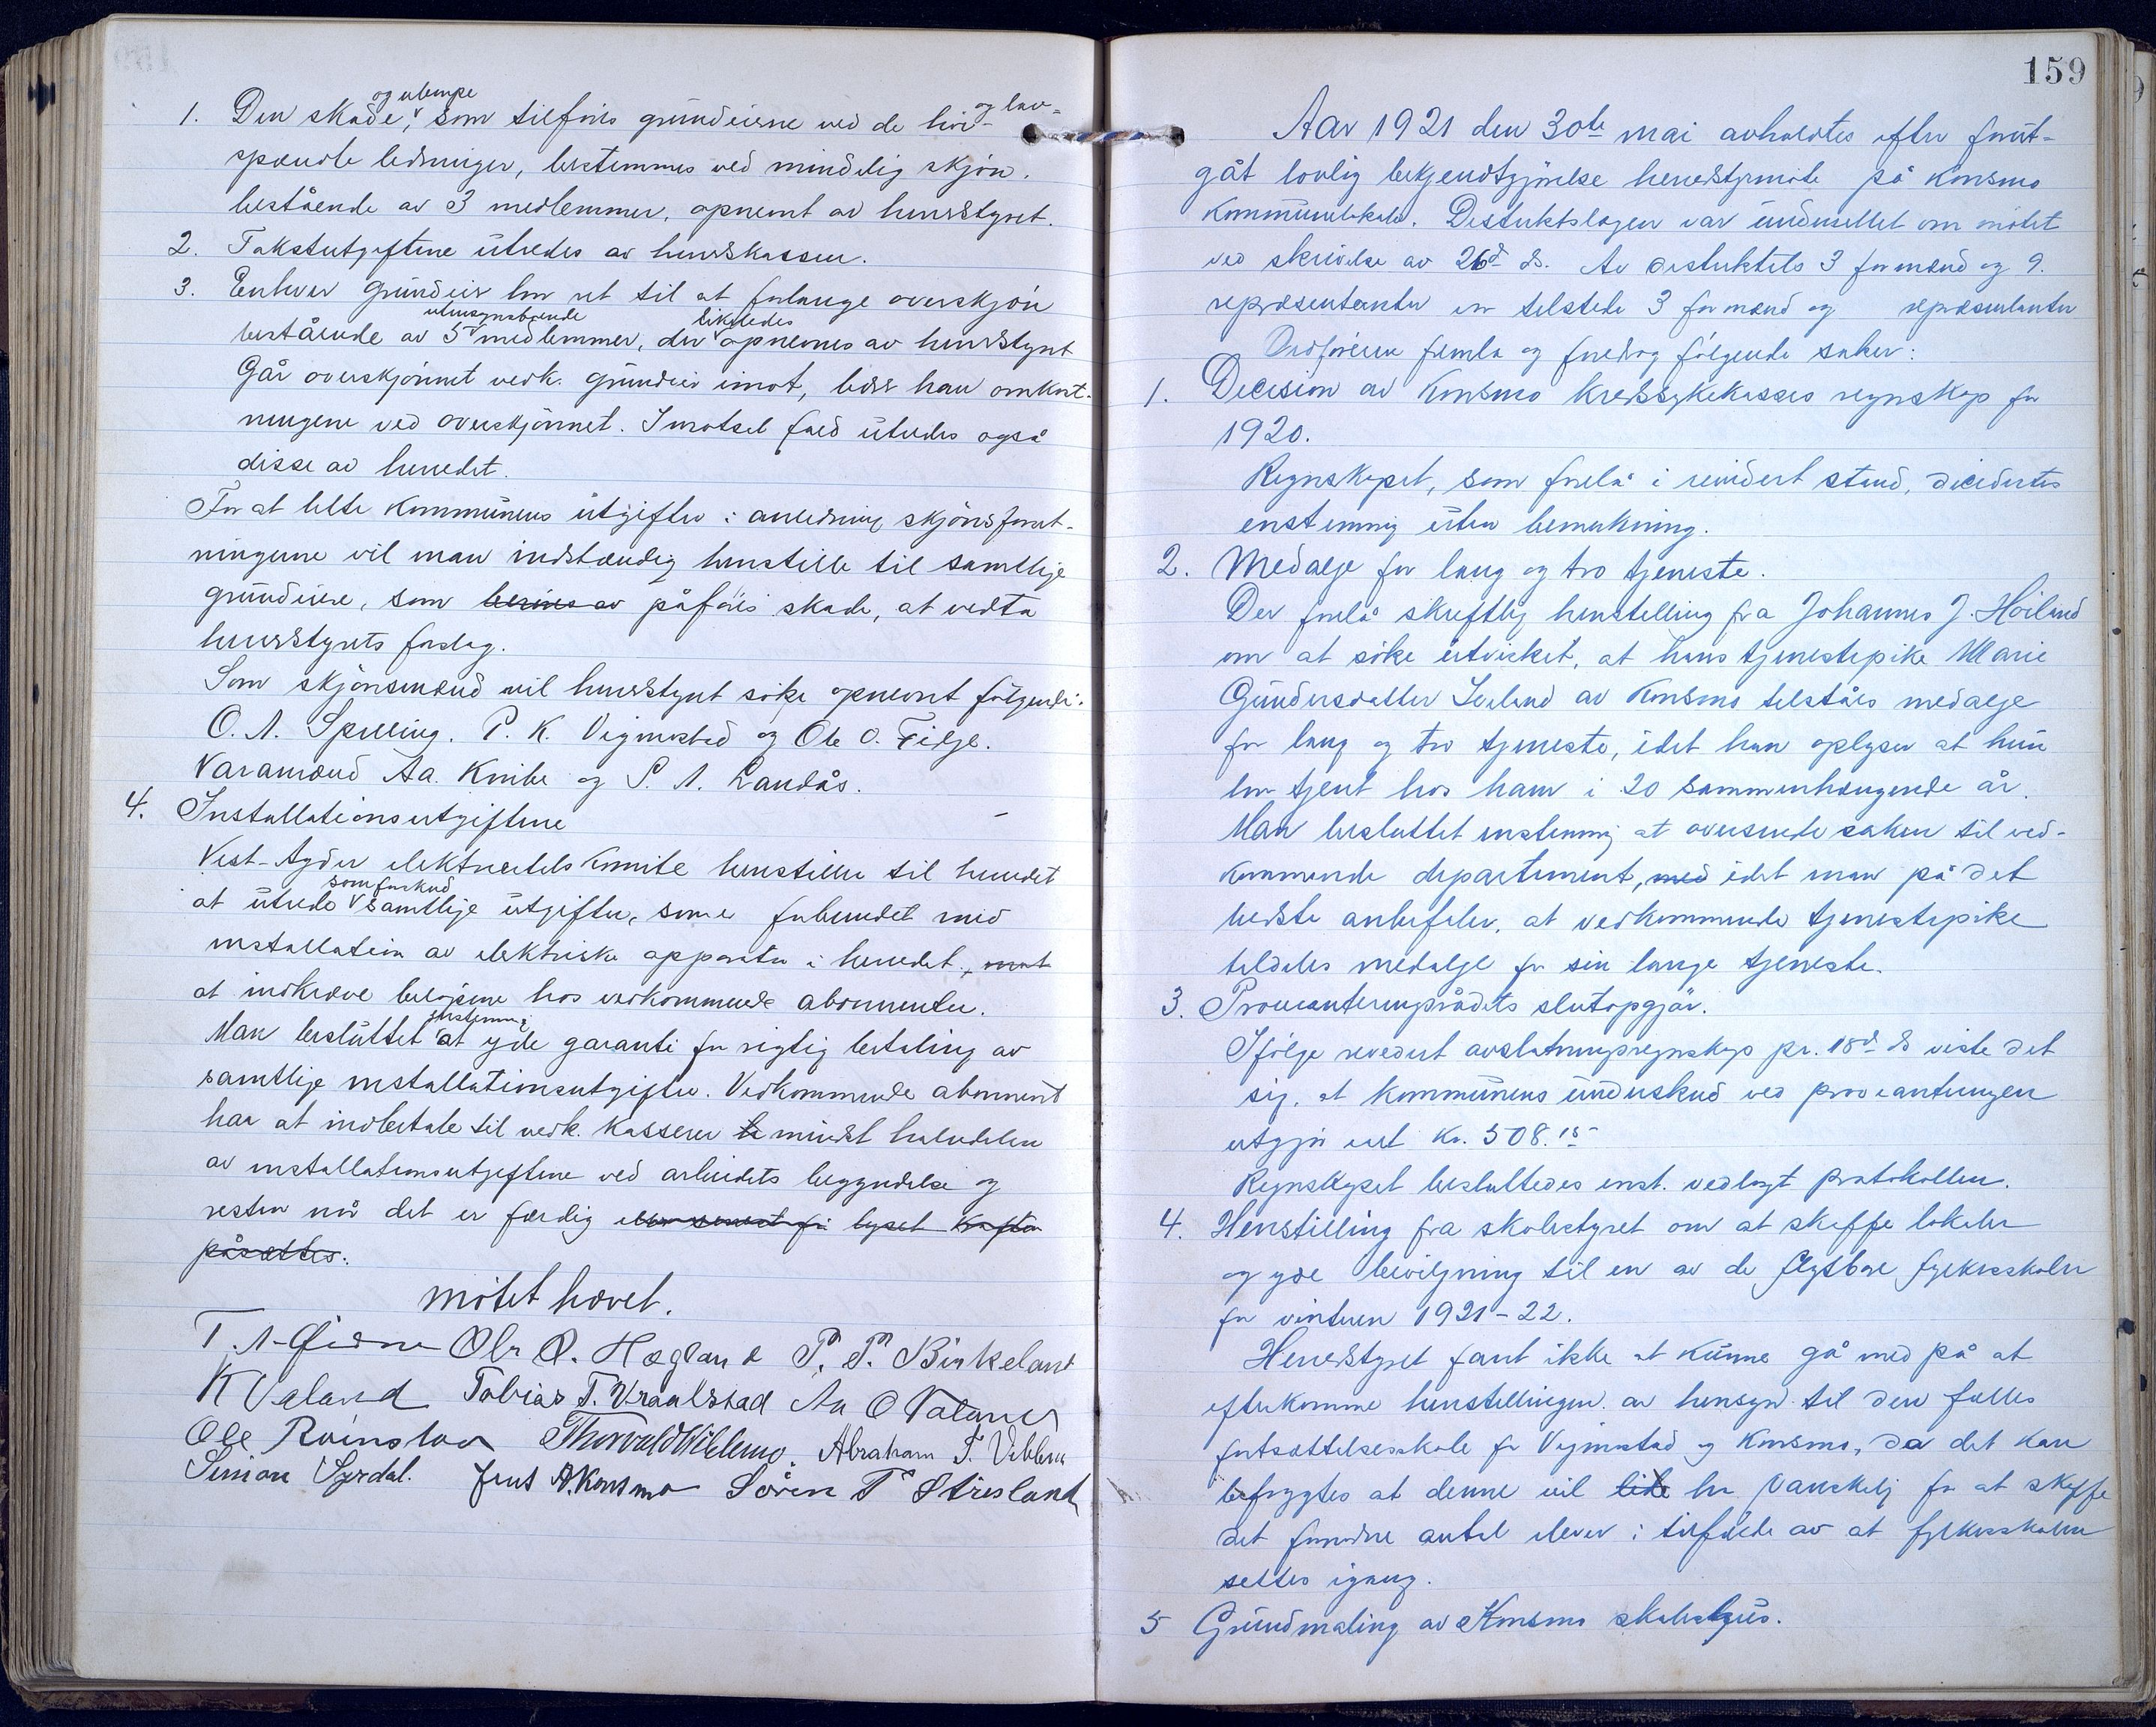 1. Den skade, og ulempe som tilføies grundeierne ved de høi- og lav-
spændte ledninger, bestemmes ved mindelig skjøn.
bestående av 3 medlemmer, opnevnt av herredstyret.
2. Takstutgiftene utredes av herredskassen.
3. Enhver grundeier har ret til at forlange overskjøn
bestående av 5 utensynsboende medlemmer, der likeledes opnevnes av herredstyret
Går overskjønnet vedk. grundeier imot, bærer han omkost-
ningene ved overskjønnet. I motsat fald utredes også
disse av herredet.
For at lette kommunens utgifter i anledning skjønsforret-
ningerne vil man indstændig henstille til samtlige
grundeiere, som påføies skade, at vedta
herredstyrets forslag.
Som skjønsmænd vil herredstyret søke opnevnt følgende:
O. A. Spilling. P. K. Vigmostad og Ole O. Fidje.
Varamænd Aa. Knibe og S. A. Landås.
4. Installationsutgiftene
Vest-Agder elektricitetskomite henstiller til herredet
at utrede som forskud samtlige utgifter, som er forbundet med
installation av elektriske apparater i herredet, mot
at indkræve beløpene hos vedkommende abonnenter.
Man besluttet enstemmig at yde garanti for rigtig betaling av
samtlige installationsutgifter. Vedkommende abonnent
har at indbetale til vedk. kasserer mindst halvdelen
av installationsutgiftene ved arbeidets begyndelse og
resten når det er færdig eller senest før lyset kraften
påsættes.
Møtet hævet.
T. A. Øidne Ole O. Hægland P. P. Birkeland
K Valand Tobias T. Vraalstad Aa O Valand
Ole Roinslov Thorvald Viblemo. Abraham T. Viblemo
Simon Syrdal. Jens A. Konsmo Søren T Stusland
159
Aar 1921 den 30te mai avholdtes efter forut-
gåt lovlig bekjendtgjørelse herredstyrmøte på Konsmo
kommunelokale. Distriktslægen var underrettet om møtet
ved skrivelse av 26d ds. Av distriktets 3 formænd og 9
repræsentanter er tilstede 3 formænd og repræsentanter
Ordføreren fremla og foredrog følgende saker:
1. Decision av Konsmo kredssykekasses regnskap for
1920.
Regnskapet, som forelå i revidert stand, decidertes
enstemmig uten bemerkning.
2. Medalje for lang og tro tjeneste.
Der forelå skriftlig henstilling fra Johannes J. Høiland
om at søke utvirket, at hans tjenestepike Marie
Gundersdatter Iveland av Konsmo tilståes medalje
for lang og tro tjeneste, idet han oplyser at hun
har tjent hos ham i 20 sammenhængende år.
Man besluttet enstemmig at oversende saken til ved-
kommende departement, med idet man på det
bedste anbefaler, at vedkommende tjenestepike
tildeles medalje for sin lange tjeneste.
3. Provianteringsrådets slutopgjør.
Ifølge revidert avslutningsregnskap pr. 18d ds viste det
sig, at kommunens underskud ved provianteringen
utgjør ialt kr. 508.15
Regnskapet besluttedes enst. vedlagt protokollen.
4. Henstilling fra skolestyret om at skaffe lokaler
og yde bevilgning til en av de flytbare fylkesskoler
for vinteren 1921-22.
Herredstyret fant ikke at kunne gå med på at
efterkomme henstillingen av hensyn til den fælles
fortsættelsesskole for Vigmostad og Konsmo, da det kan
befrygtes at denne vil ha vanskelig for at skaffe
det fornødne antal elever i tilfælde av at fylkesskolen
settes igang.
5 Grundmaling av Konsmo skolehus.